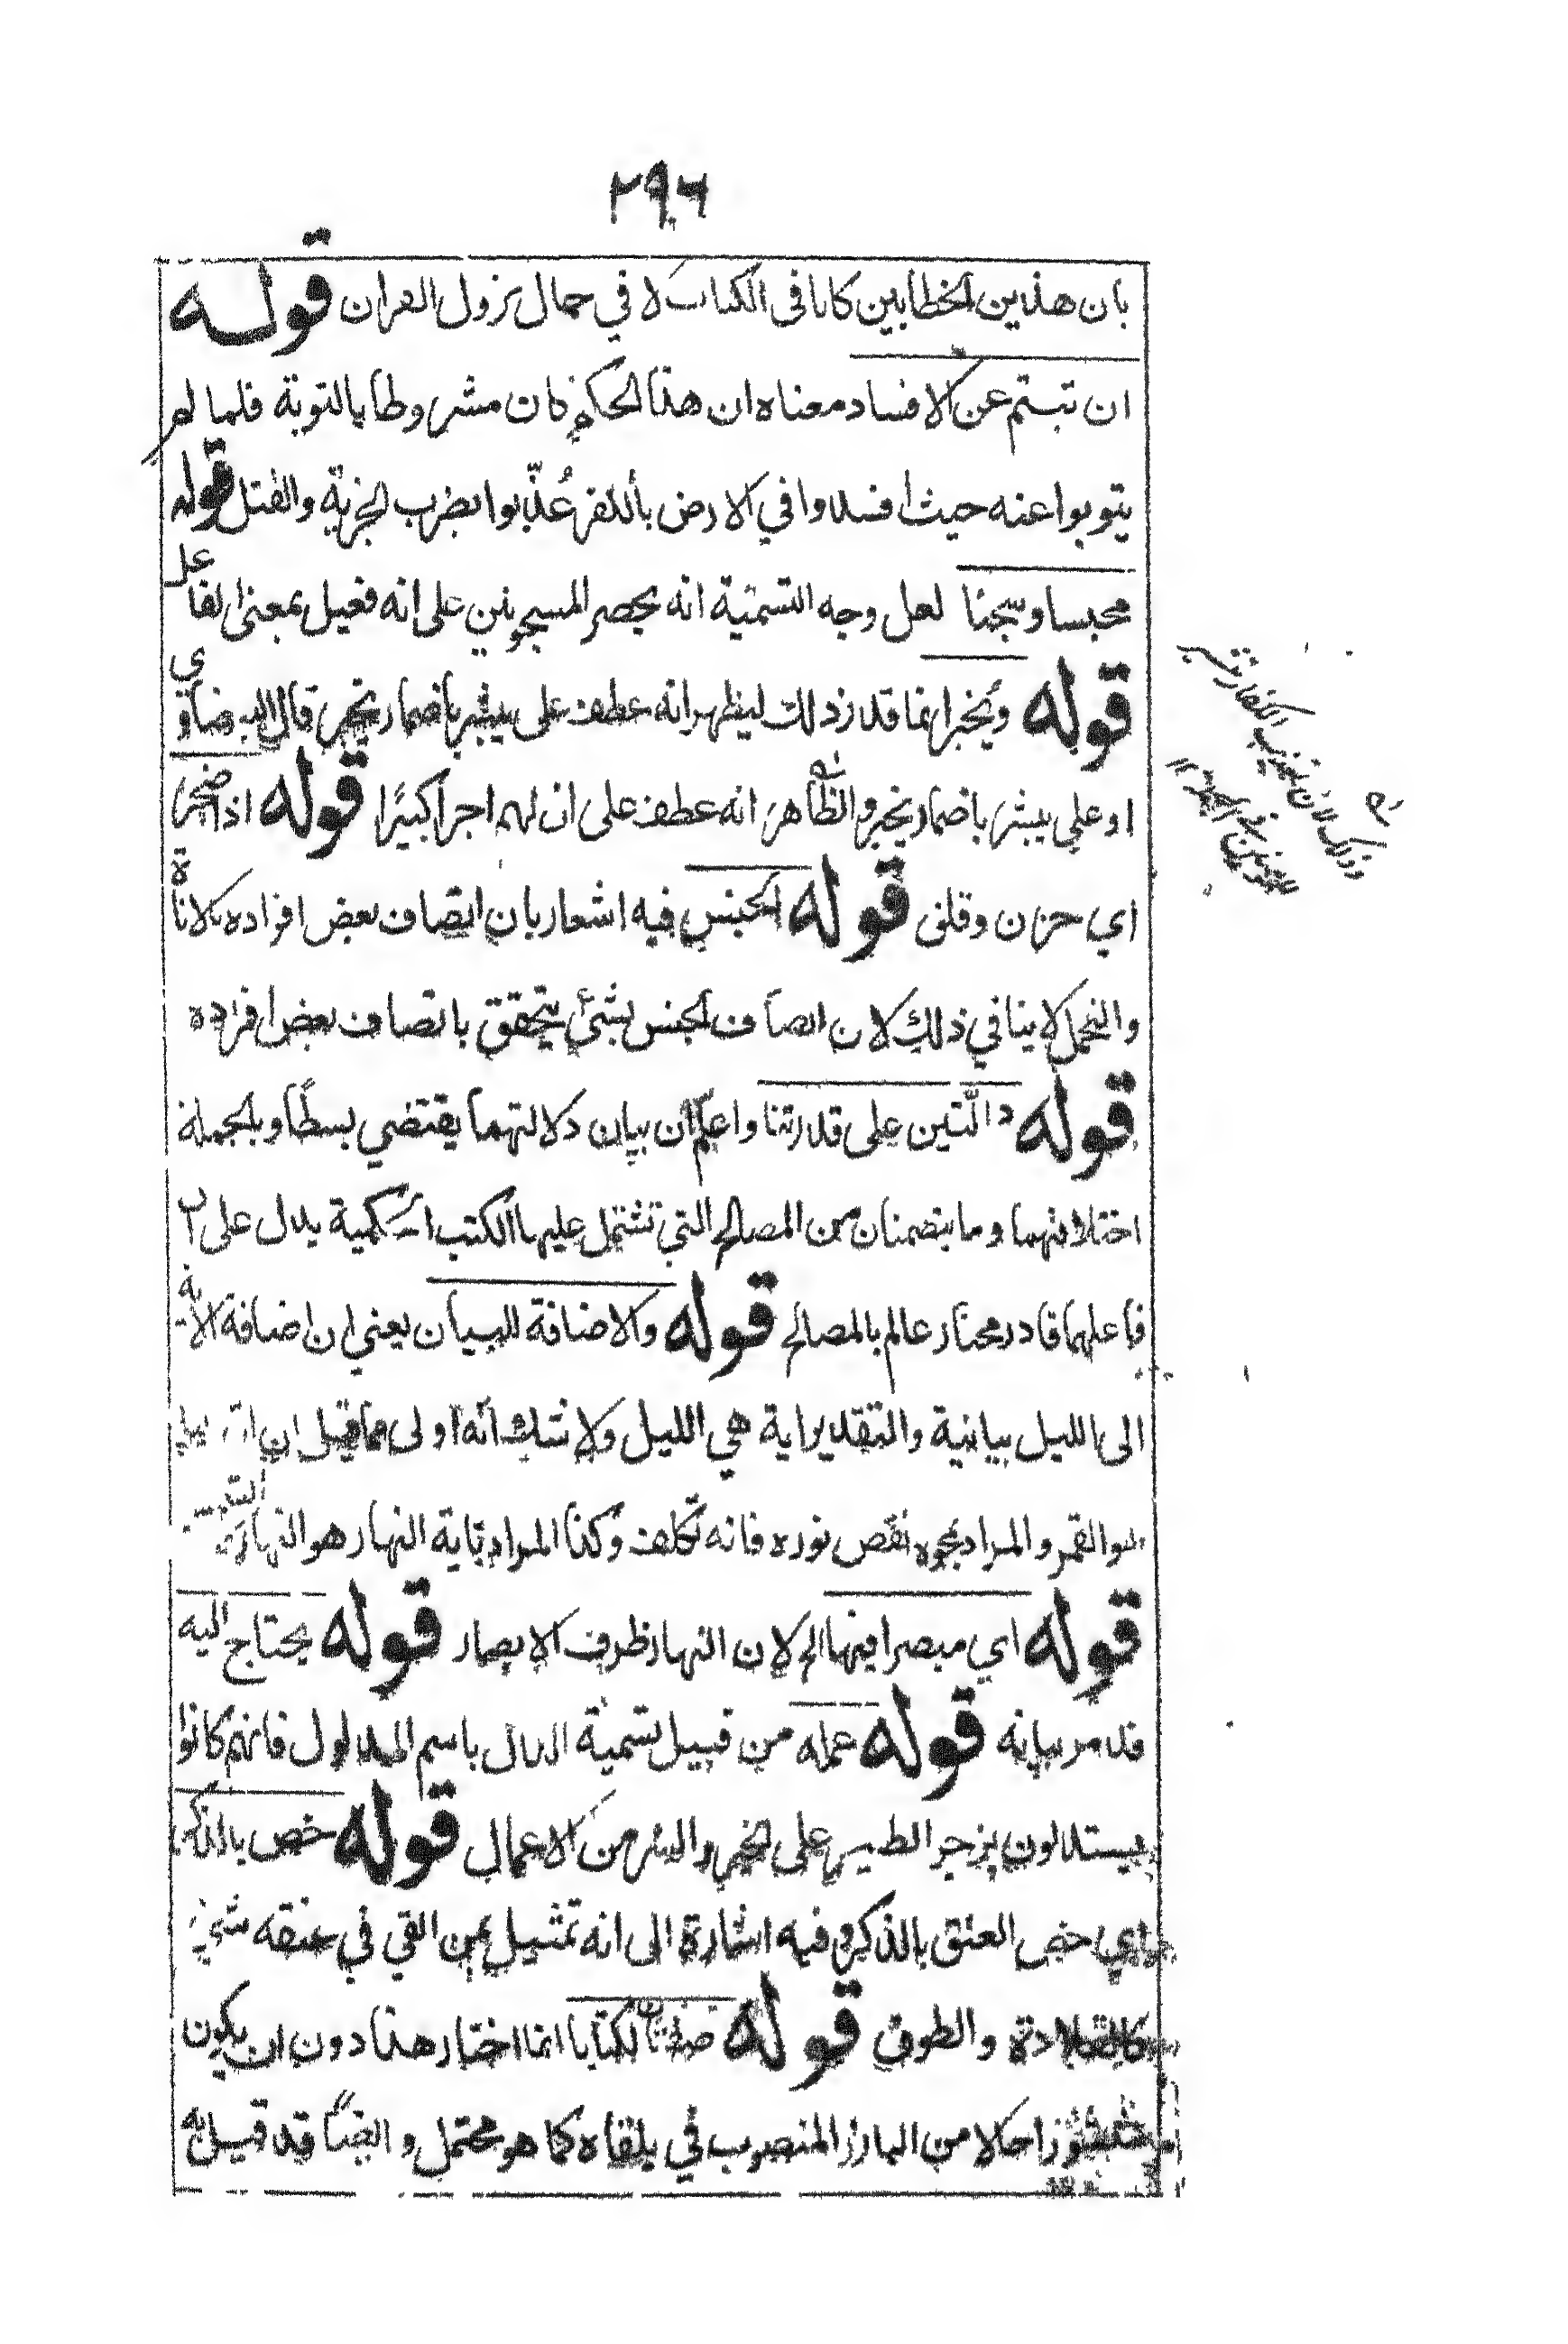 ٢٩٦
بان هذين الخطابين كانا فى الكتاب لا في حال نزول القران قوله
ان تبتم عن الافساد معناه ان هذا الحكم كان مشروطا بالتوبة فلما لم
يتوبوا عنه حيث افسدوا في الارض بالكفر عُذّبوا بضرب الجزية والقتل قوله
محبسا وسجنا لعل وجه التسمية انه يحصر المسجونين على انه فعيل بمعنى الفاعل
قوله ويخبر انما قدر ذلك ليظهر انه عطف على يبشر باضمار يخبر قال البيضاوى
او على يبشر باضمار يخبر والظاهر انه عطف على ان لهم اجرا كبيرًا قوله اذا ضجر
اي حزن وقلق قوله الجنس فيه اشعار بان اتصاف بعض افراده بالاناة
والتحمل لا ينافي ذلك لان اتصاف الجنس بشئ يتحقق باتصاف بعض افراده
قوله دالّتين على قدرتنا واعلم ان بيان دلالتهما يقتضي بسطًا وبالجملة
اختلافهما وما يتضمنان من المصالح التي تشتمل عليها الكتب الحكمية يدل على ان
فاعلهما قادر مختار عالم بالمصالح قوله والاضافة للبيان يعني ان اضافة الاية
الى الليل بيانية والتقدير اية هي الليل ولا شك انه اولى مما قيل ان اية الليل
هو القمر والمراد بمحوه نقص نوره فانه تكلف وكذا المراد باية النهار هو النهار
قوله اي مبصرا فيها الخ لان النهار ظرف الابصار قوله يحتاج اليه
قد مر بيانه قوله عمله من قبيل تسمية الدال باسم المدلول فانهم كانوا
يستدلون بزجر الطير على الخير والشر من الاعمال قوله خص بالذكر
اي خص العنق بالذكر وفيه اشارة الى انه تمثيل بمن القي في عنقه شئ
كالقلادة والطوق قوله صفتان لكتابا انما اختار هذا دون ان يكون
منشورا حالا من البارز المنصوب في يلقاه كما هو محتمل و ايضًا قد قيل به
وذلك لان تعذيب الكفار بشير
للمؤمنين